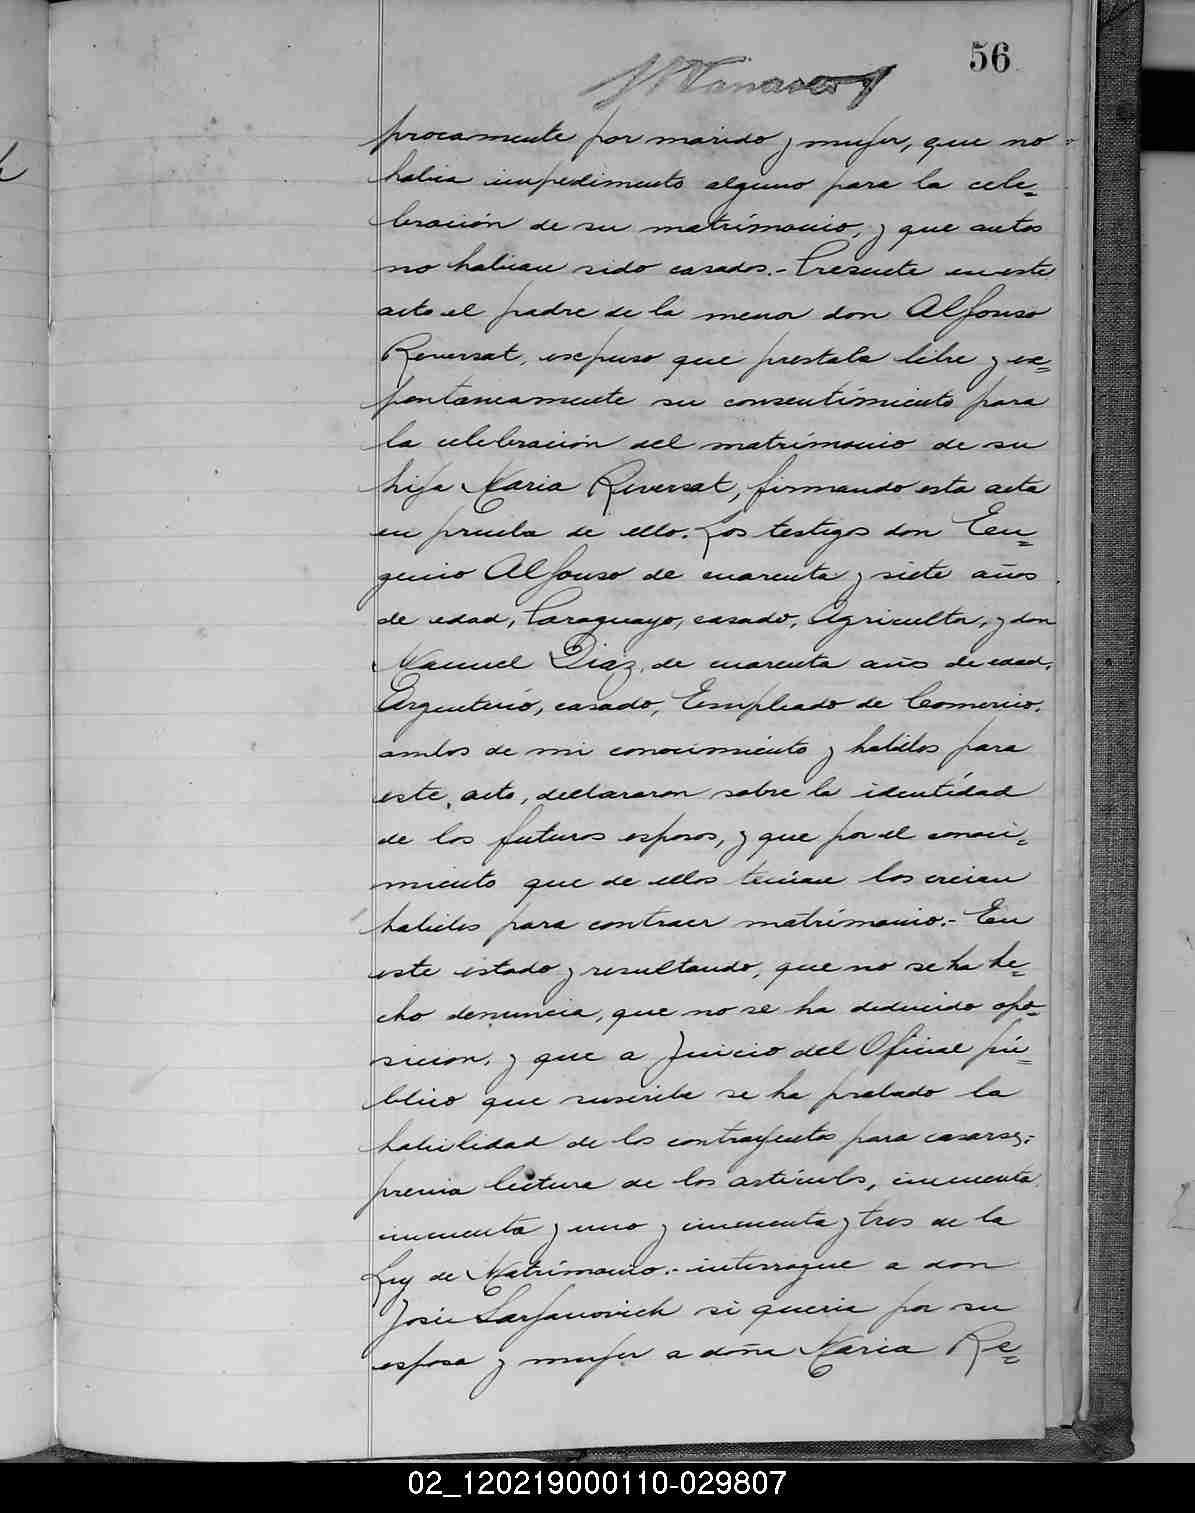 56
procamente por marido y mujer, que no
habia impedimento alguno para la cele=
bración de su matrimonio, y que antes
no habian sido casados.- Presente en este
acto el padre de la menor don Alfonso
Reversat, expuso que prestaba libre y ex=
pontaneamente su consentimiento para
la celebración del matrimonio de su
hija Maria Reversat, firmando esta acta
en prueba de ello. Los testigos don Eu=
genio Alfonso de cuarenta y siete años
de edad, Paraguayo, casado, Agricultor, y don
Manuel Diaz, de cuarenta años de edad,
Argentino, casado, Empleado de Comercio,
ambos de mi conocimiento y habiles para
este acto, declararon sobre la identidad
de los futuros esposos, y que por el conoci=
miento que de ellos tenian los creian
habiles para contraer matrimonio.- En
este estado y resultando, que no se ha he=
cho denuncia, que no se ha deducido opo=
sicion, y que a juicio del Oficial pú=
blico que suscribe se ha probado la
habilidad de los contrayentes para casarse;
previa lectura de los articulos, cincuenta,
cincuenta y uno y cincuenta y tres de la
Ley de Matrimonio.- interrogue a don
José Sarfanovich si queria por su
esposa y mujer a doña Maria Re=
02_120219000110-029807